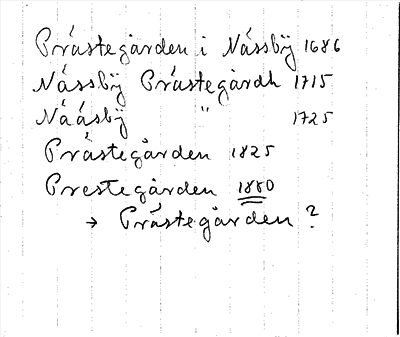 Prästegården i Nässbÿ 1686
Nässbÿ Prästegårdh 1715
Nääsbÿ " 1725
Prästegården 1825
Prestegården 1880
→ Prästegården?